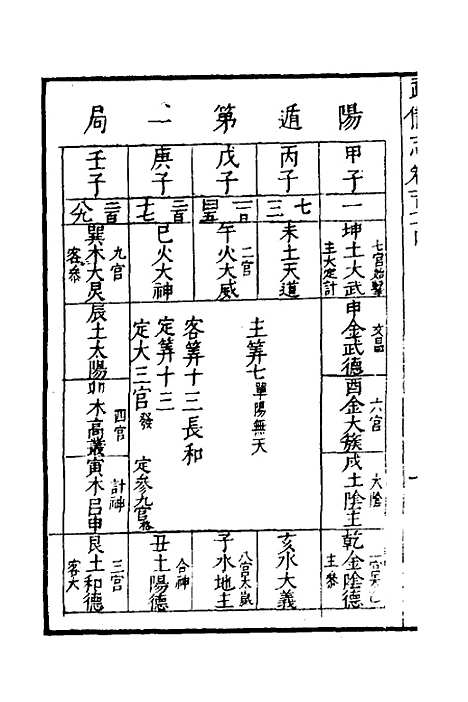 武備志卷一百
陽遁第一局
甲子
一
七宮始擊
坤土大武
主大定計
文昌
申金武德
六宮
酉金大簇
太陰
戌土陰主
一宮
乾金陰德
主參
丙子
七三
未土天道
亥水大義
戊子
一百四五
二宮
午火大威
八宮太歲
子水地主
庚子
二百十七
巳火大神
合神
丑土陽德
壬子
二百八九
九宮
巽木大炅
客參
辰土太陽
四宮
卯木高叢
計神
寅木呂申
三宮
艮土和德
客大
主筭七單陽無天
客筭十三長和
定筭十三
定大三宮發 定參九宮格